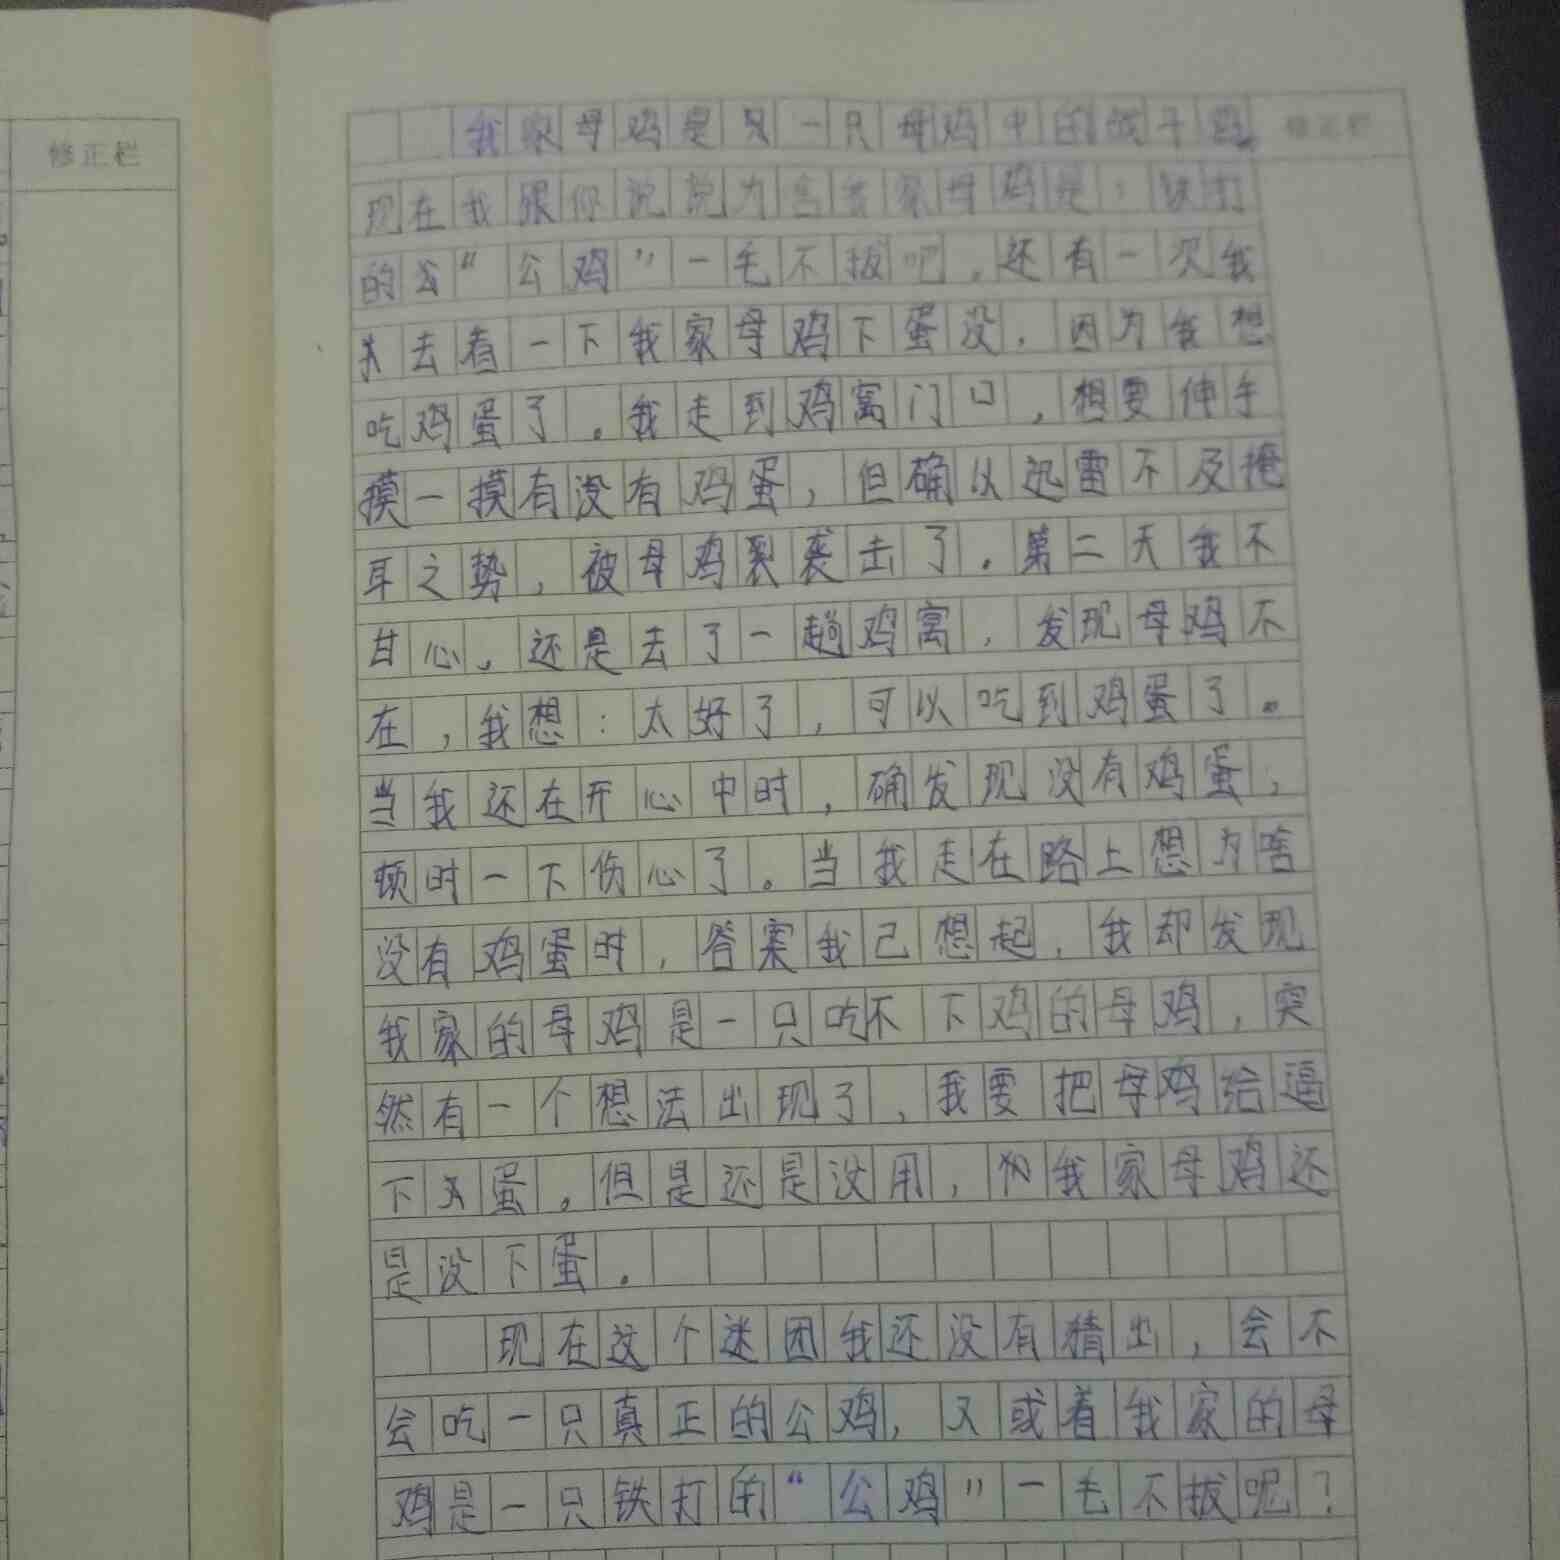 修正栏
我家母鸡是一只母鸡中的战斗鸡 修正栏
现在我跟你说说为啥我家母鸡是：铁打
的“公鸡”一毛不拔吧，还有一次我
去看一下我家母鸡下蛋没，因为我想
吃鸡蛋了。我走到鸡窝门口，想要伸手
摸一摸有没有鸡蛋，但确以迅雷不及掩
耳之势，被母鸡裂袭击了。第二天我不
甘心，还是去了一趟鸡窝，发现母鸡不
在，我想：太好了，可以吃到鸡蛋了。
当我还在开心中时，确发现没有鸡蛋，
顿时一下伤心了。当我走在路上想为啥
没有鸡蛋时，答案我己想起，我却发现
我家的母鸡是一只吃不下鸡的母鸡，突
然有一个想法出现了，我要把母鸡给逼
下蛋，但是还是没用，我家母鸡还
是没下蛋。
现在这个迷团我还没有精出，会不
会吃一只真正的公鸡，又或着我家的母
鸡是一只铁打的“公鸡”一毛不拔呢？